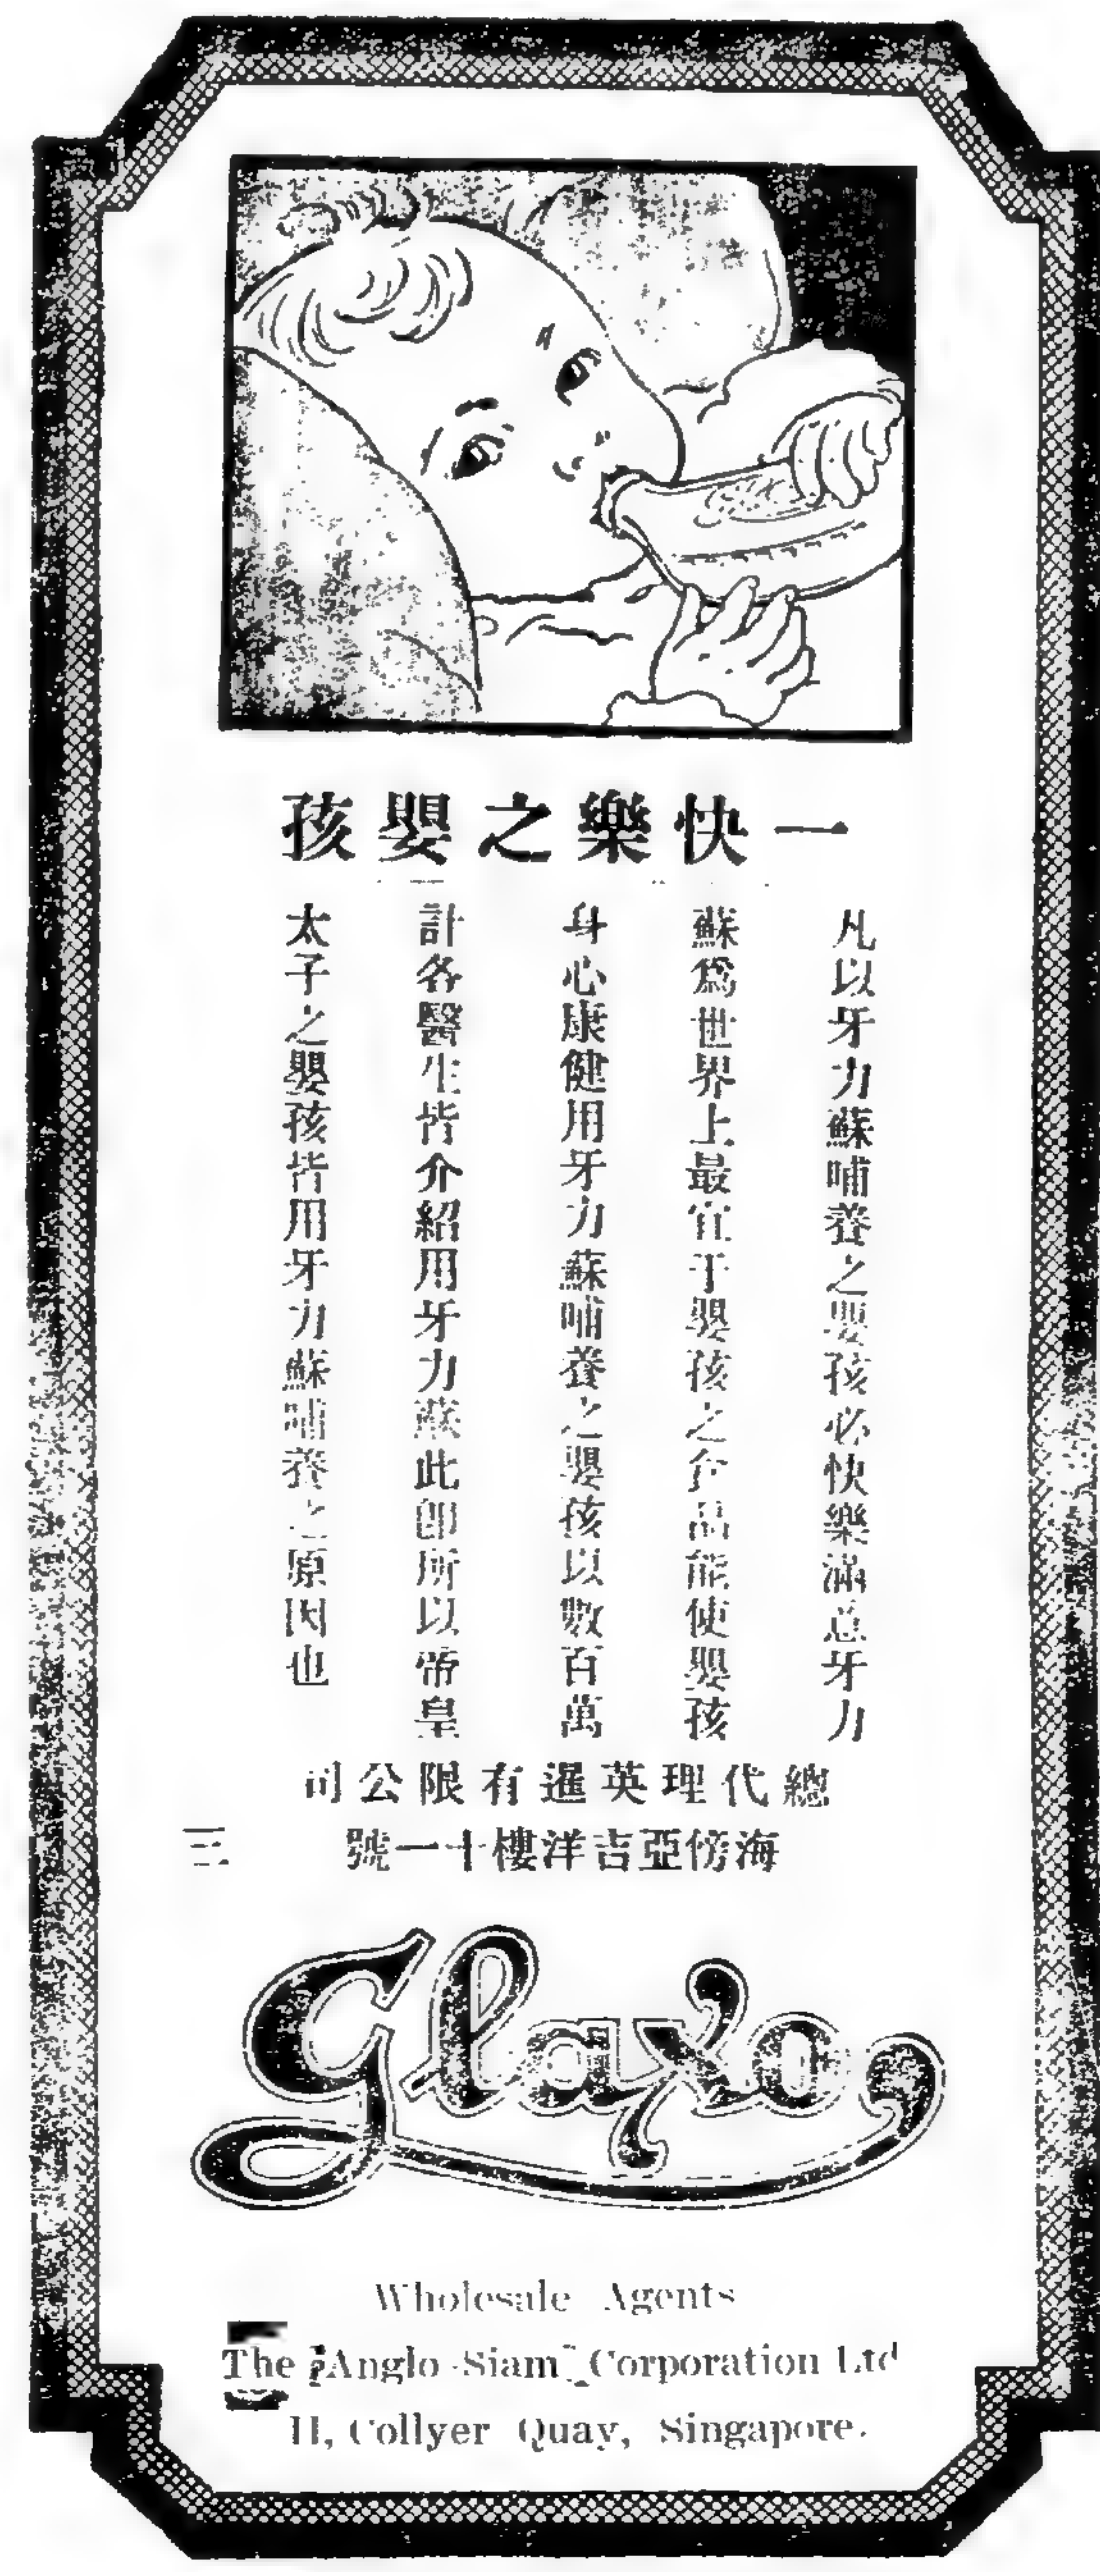 一快樂之嬰孩
凡以牙力蘇哺養之嬰孩必快樂滿意牙力
蘇爲世界上最宜于嬰孩之食品能使嬰孩
身心康健用牙力蘇哺養之嬰孩以數百萬
計各醫生皆介紹用牙力蘇此卽所以帝皇
太子之嬰孩皆用牙力蘇哺養之原因也
總代理英暹有限公司
海傍亞吉洋樓十一號
三
Glaxo
Wholesale Agents
The Anglo-Siam Corporation Ltd
11, Collyer Quay, Singapore.